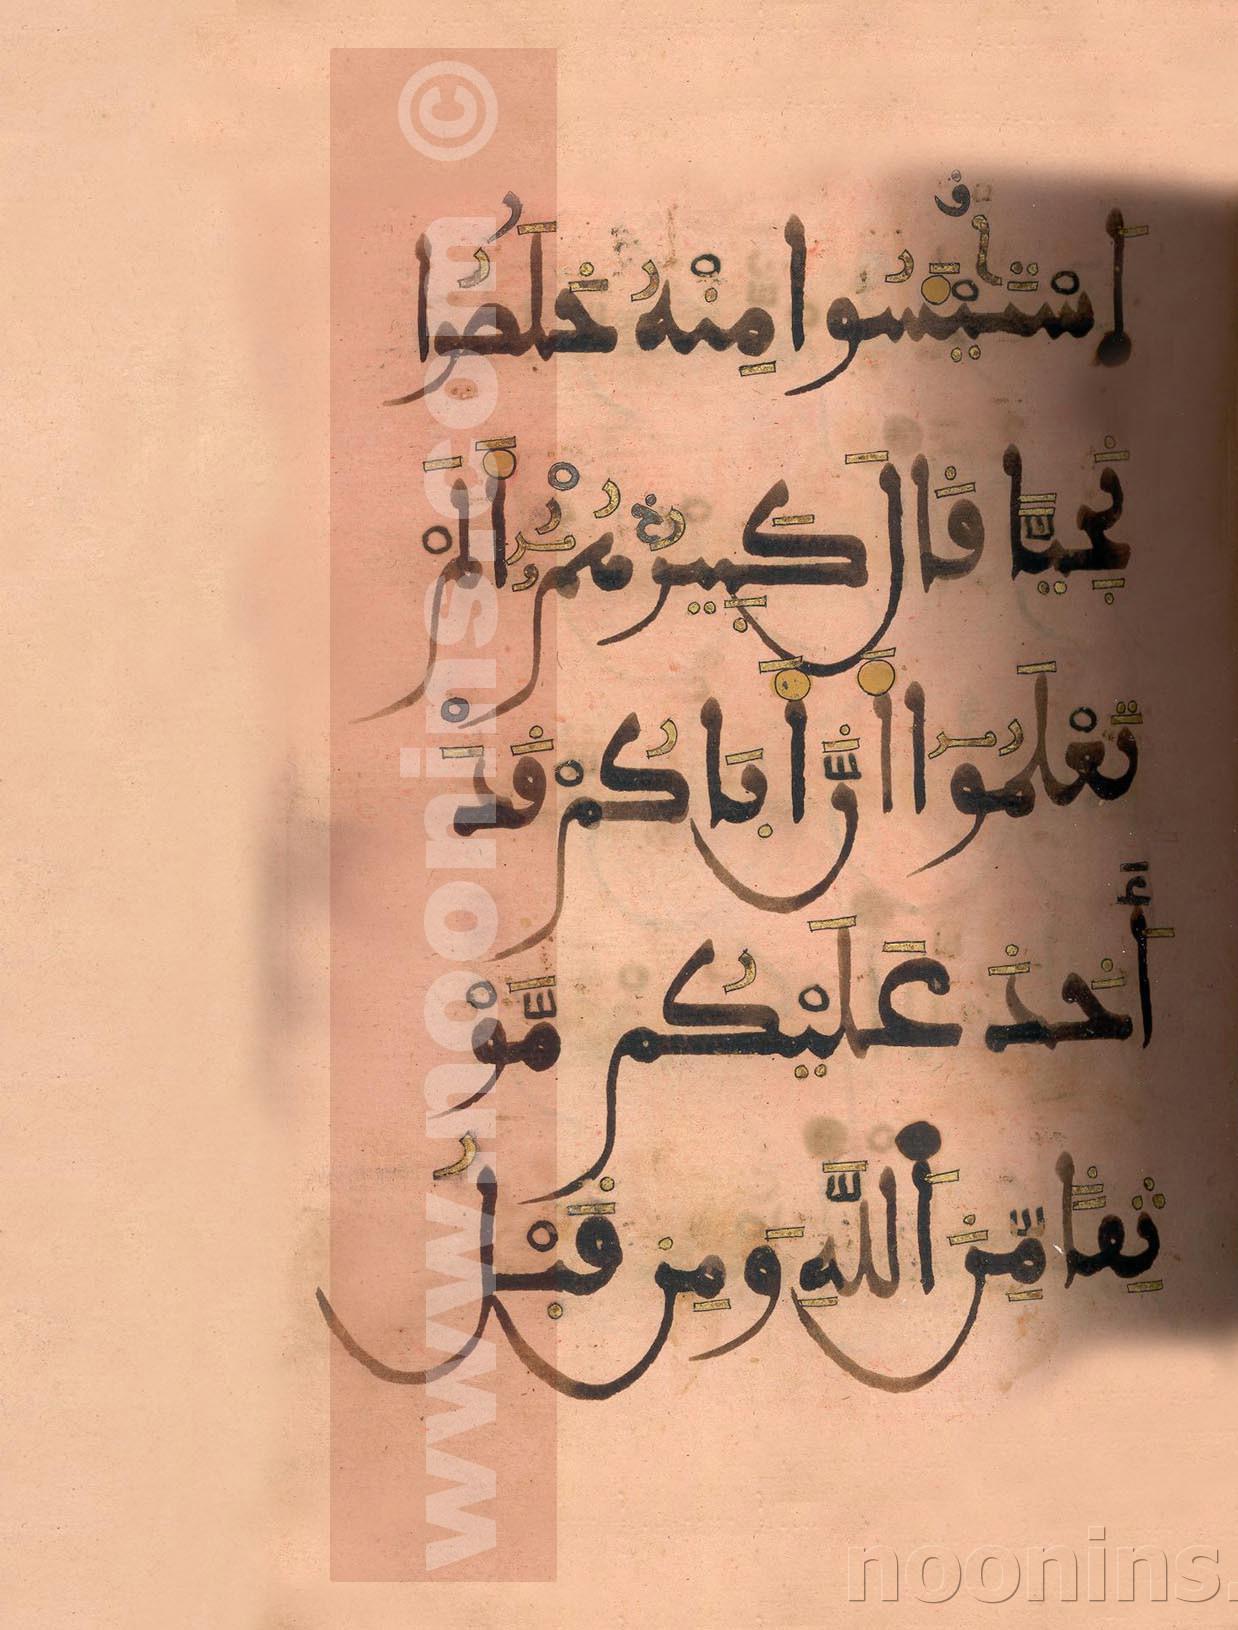 اِسْتَيْـَٔسُوا مِنْهُ خَلَصُوا
نَجِيًّا قَالَ كَبِيرُهُمُۥ أَلَمْ
تَعْلَمُوا أَنَّ أَبَاكُمْ قَدَ
أَخَذَ عَلَيْكُم مَّوْ
ثِقًا مِّنَ اَللَّهِ وَمِن قَبْلُ
© www.noonins.com
noonins.